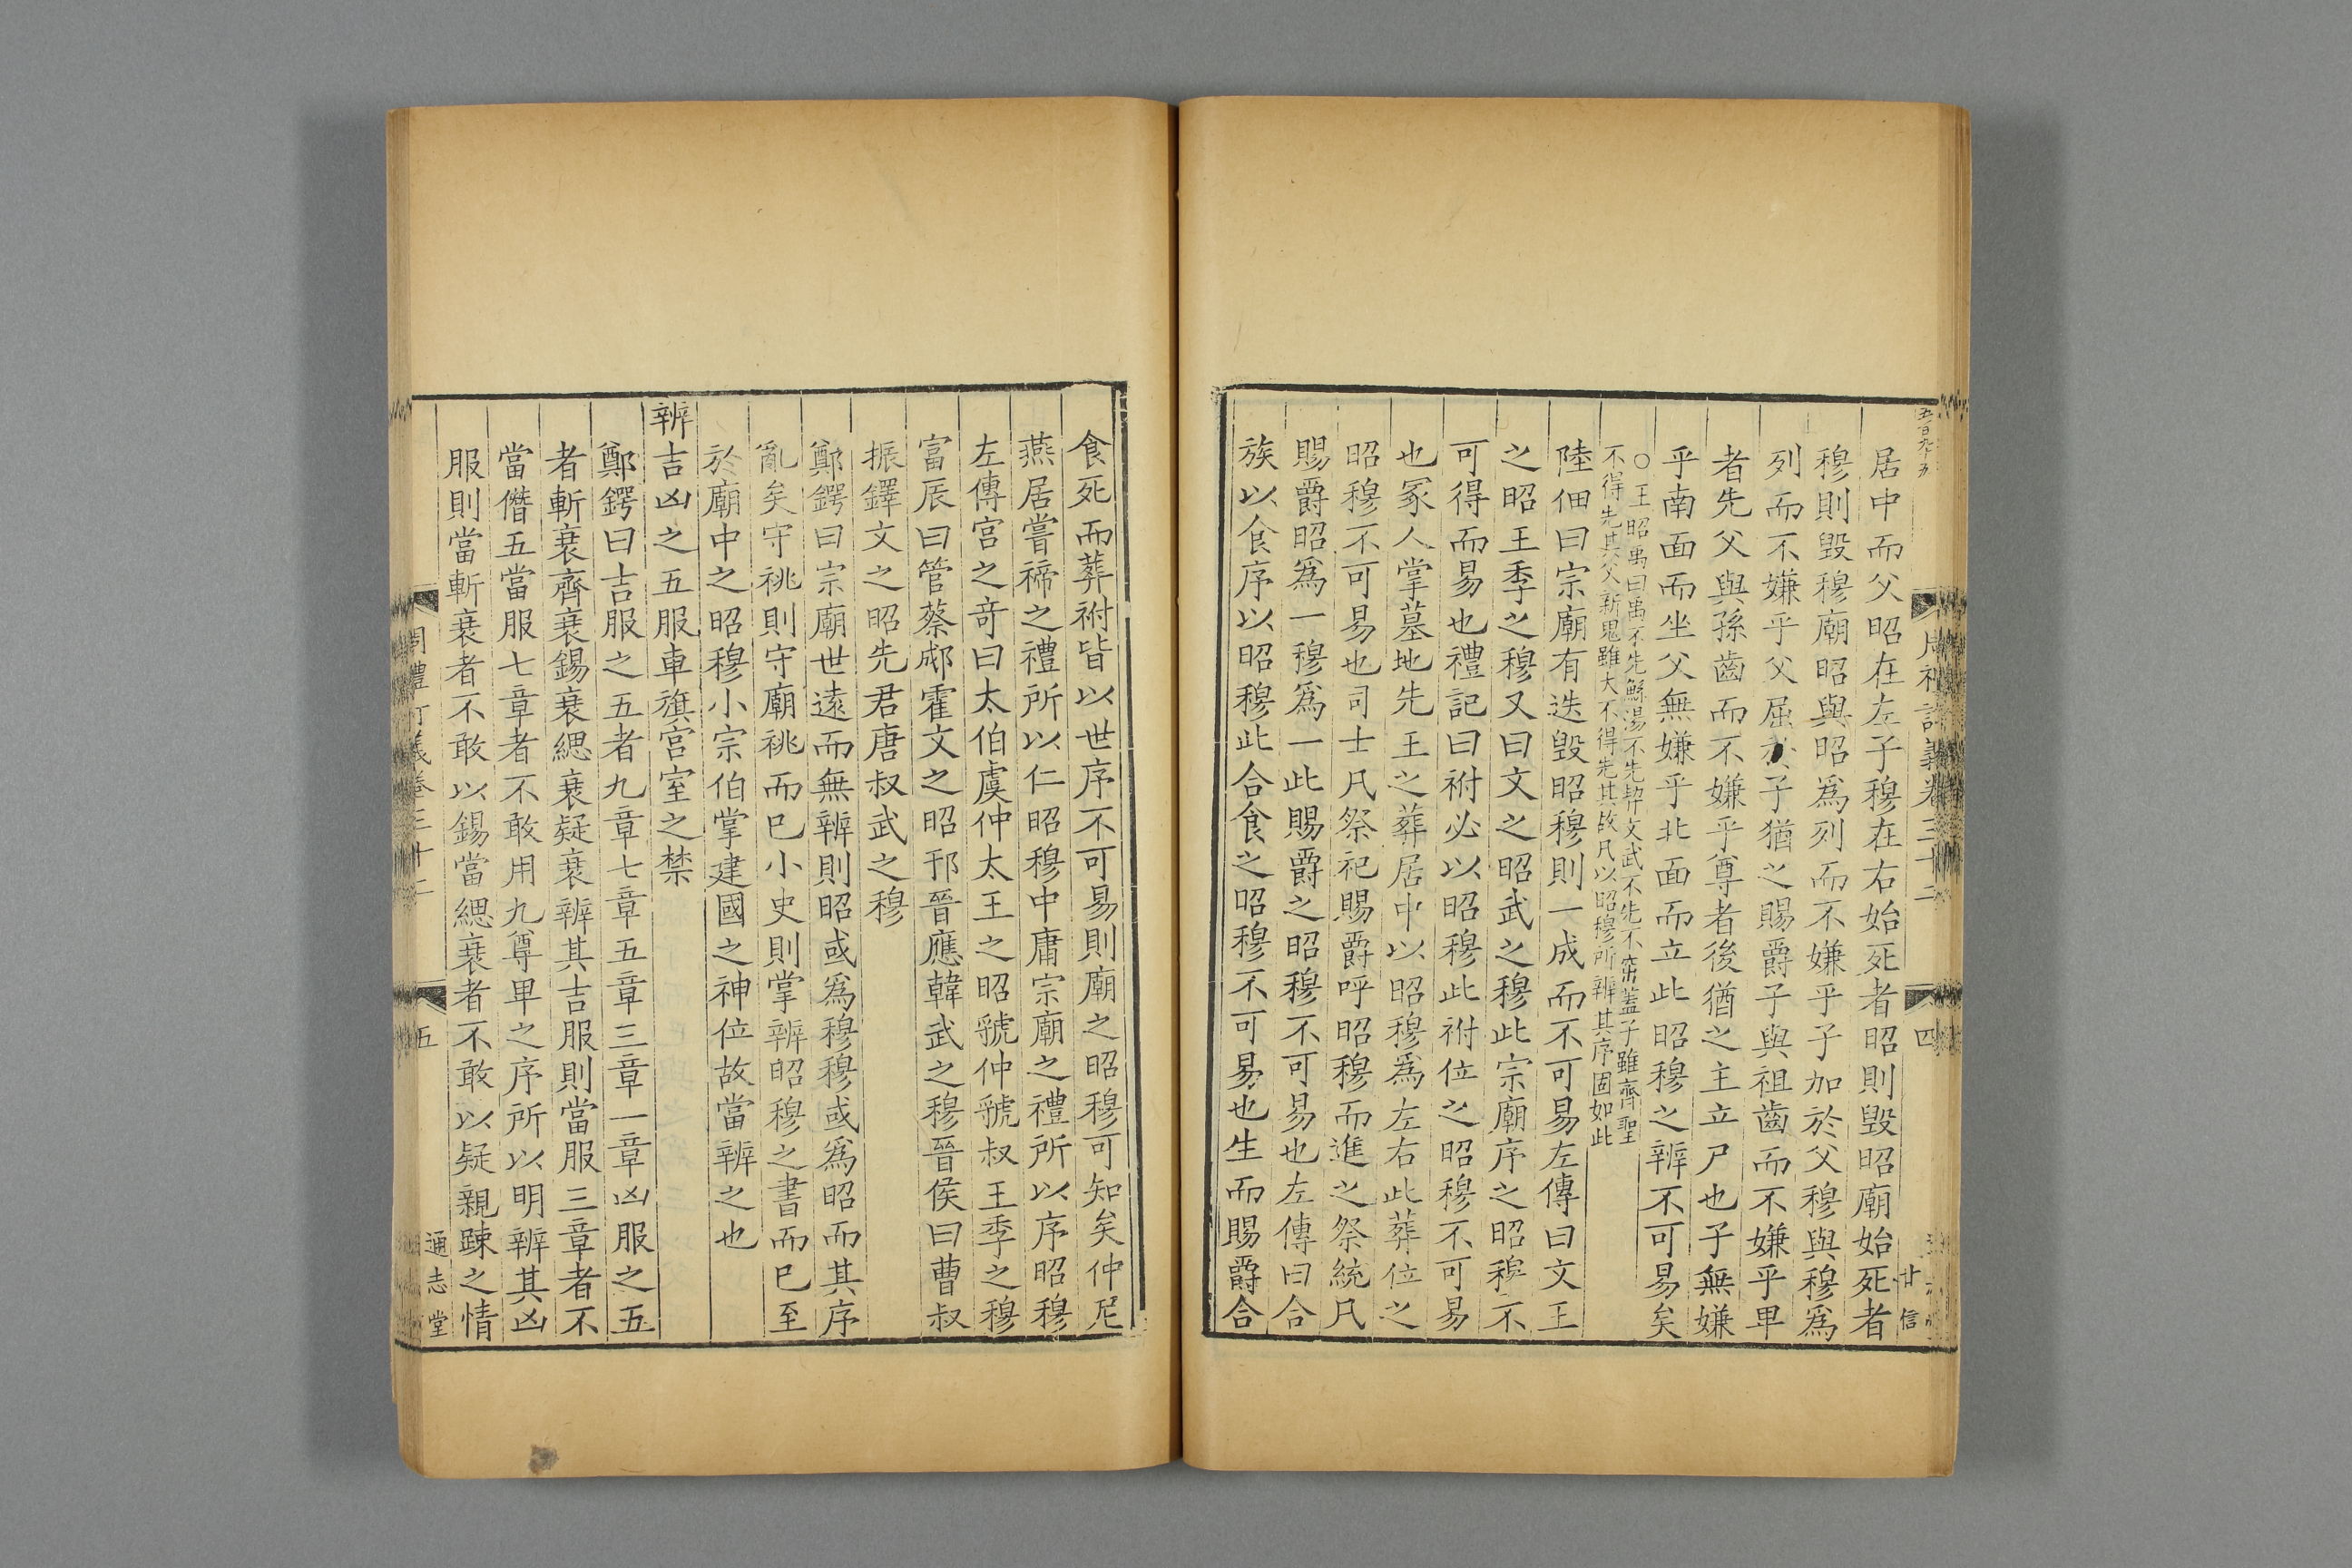 五百九十五
居中而父昭在左子穆在右始死者昭則毀昭廟始死者
穆則毀穆廟昭與昭爲列而不嫌乎子加於父穆與穆爲
列而不嫌乎父屈於子猶之賜爵子與祖齒而不嫌乎卑
者先父與孫齒而不嫌乎尊者後猶之主立尸也子無嫌
乎南面而坐父無嫌乎北面而立此昭穆之辨不可易矣
○王昭禹曰禹不先鯀湯不先契文武不先不窋蓋子雖齊聖
不得先其父新鬼雖大不得先其故凡以昭穆所辨其序固如此
陸佃曰宗廟有迭毀昭穆則一成而不可易左傳曰文王
之昭王季之穆又曰文之昭武之穆此宗廟序之昭穆不
可得而易也禮記曰祔必以昭穆此祔位之昭穆不可易
也冢人掌墓地先王之葬居中以昭穆爲左右此葬位之
昭穆不可易也司士凡祭祀賜爵呼昭穆而進之祭統凡
賜爵昭爲一穆爲一此賜爵之昭穆不可易也左傳曰合
族以食序以昭穆此合食之昭穆不可易也生而賜爵合
四
廿信
食死而葬祔皆以世序不可易則廟之昭穆可知矣仲尼
燕居嘗禘之禮所以仁昭穆中庸宗廟之禮所以序昭穆
左傳宮之奇曰太伯虞仲太王之昭虢仲虢叔王季之穆
富辰曰管蔡郕霍文之昭邘晉應韓武之穆晉侯曰曹叔
振鐸文之昭先君唐叔武之穆
鄭鍔曰宗廟世遠而無辨則昭或爲穆穆或爲昭而其序
亂矣守祧則守廟祧而巳小史則掌辨昭穆之書而巳至
於廟中之昭穆小宗伯掌建國之神位故當辨之也
辨吉凶之五服車旗宮室之禁
鄭鍔曰吉服之五者九章七章五章三章一章凶服之五
者斬衰齊衰錫衰緦衰疑衰辨其吉服則當服三章者不
當僭五當服七章者不敢用九尊卑之序所以明辨其凶
服則當斬衰者不敢以錫當緦衰者不敢以疑親踈之情
五
通志堂